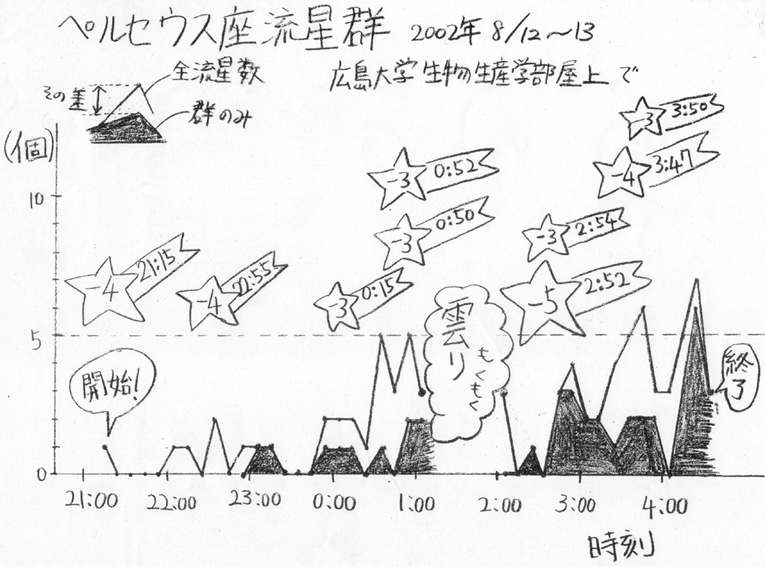 ペルセウス座流星群 2002年 8/12〜13
広島大学生物生産学部屋上で
全流星数
その差
群のみ
(個)
10
5
0
-4 21:15
-4 22:55
-3 0:15
-3 0:50
-3 0:52
-5 2:52
-3 2:54
-4 3:47
-3 3:50
開始!
雲り
もくもく
終了
21:00 22:00 23:00 0:00 1:00 2:00 3:00 4:00
時刻